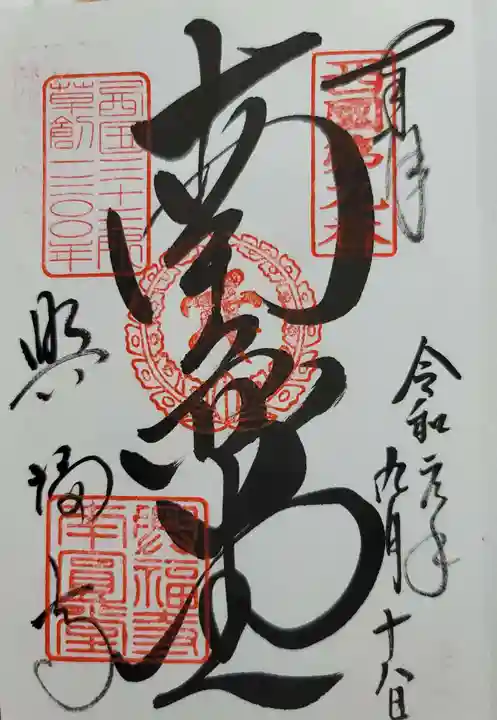 奉拝
西國第九番
令和元年
九月十八日
南円堂
西国三十三所
草創一三〇〇年
興福寺
興福寺
南圓堂